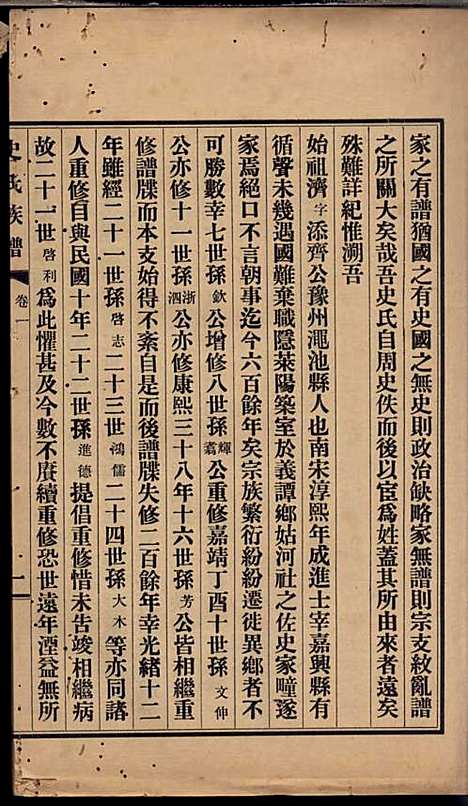 家之有譜猶國之有史國之無史則政治缺略家無譜則宗支紋亂譜
之所關大矣哉吾史氏自周史佚而後以官爲姓蓋其所由來者遠矣
殊難詳紀惟溯吾
始祖濟字添齊公豫州澠池縣人也南宋淳熙年成進士宰嘉興縣有
循聲未幾遇國難棄職隱萊陽築室於義譚鄉姑河社之佐史家疃遂
家焉絕口不言朝事迄今六百餘年矣宗族繁衍紛紛遷徙異鄉者不
可勝數幸七世孫欽公增修八世孫輝翥公重修嘉靖丁酉十世孫文伸
公亦修十一世孫浙泗公亦修康熙三十八年十六世孫芳公皆相繼重
修譜牒而本支始得不紊自是而後譜牒失修二百餘年幸光緒十二
年雖經二十一世孫啓志二十三世鴻儒二十四世孫大木等亦同諸
人重修自與民國十年二十二世孫進德提倡重修惜未告竣相繼病
故二十一世啓利爲此懼甚及今數不賡續重修恐世遠年湮益無所
史氏族譜 卷一 一